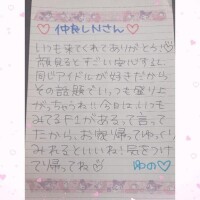 仲良しNさん
いつも来てくれてありがとう!♡
顔見るとすごい安心するし
同じアイドルが好きだから
その話題でいっつも盛り上
がっちゃうね!!今日はいつも
みてるF1があるって言って
たから、お家帰ってゆっくり
みれるといいね!気をつけ
てり帰ってね♡
ゆの♡